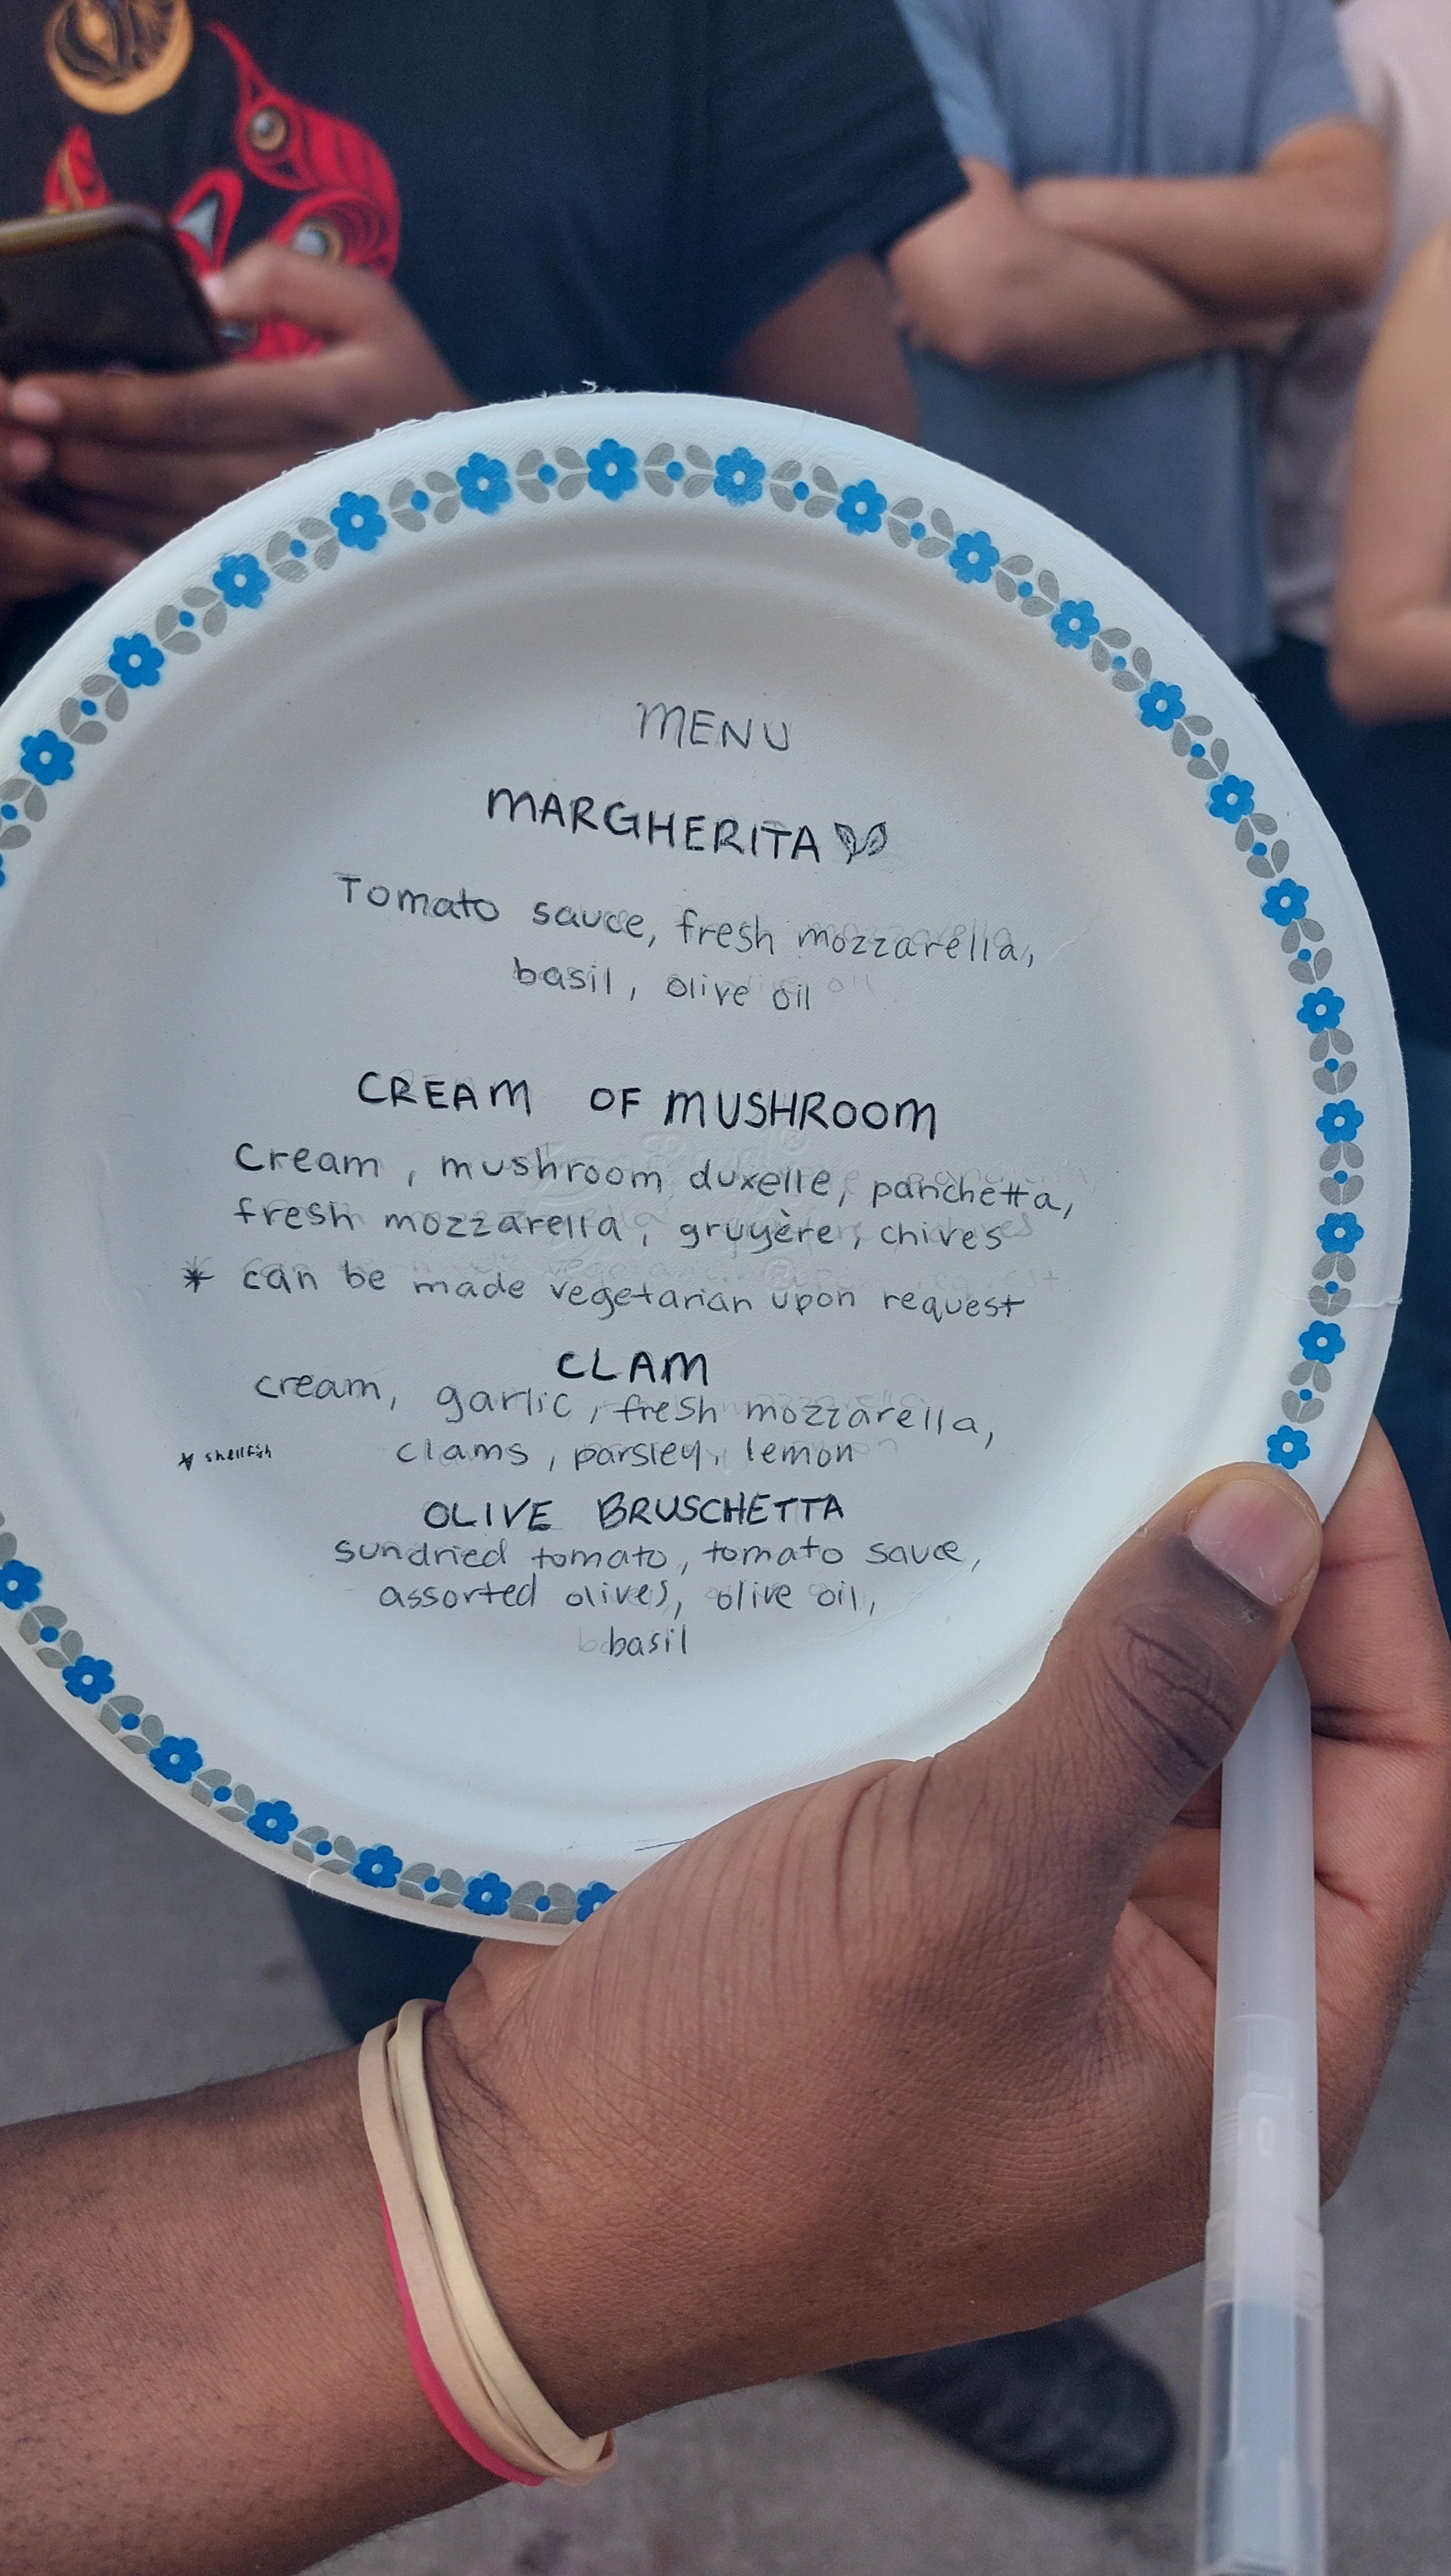 MENU
MARGHERITA
Tomato sauce, fresh mozzarella,
basil, olive oil
CREAM OF MUSHROOM
Cream, mushroom duxelle, panchetta,
fresh mozzarella, gruyère, chives
* can be made vegetarian upon request
CLAM
cream, garlic, fresh mozzarella,
clams, parsley, lemon
* shellfish
OLIVE BRUSCHETTA
sundried tomato, tomato sauce,
assorted olives, olive oil,
basil